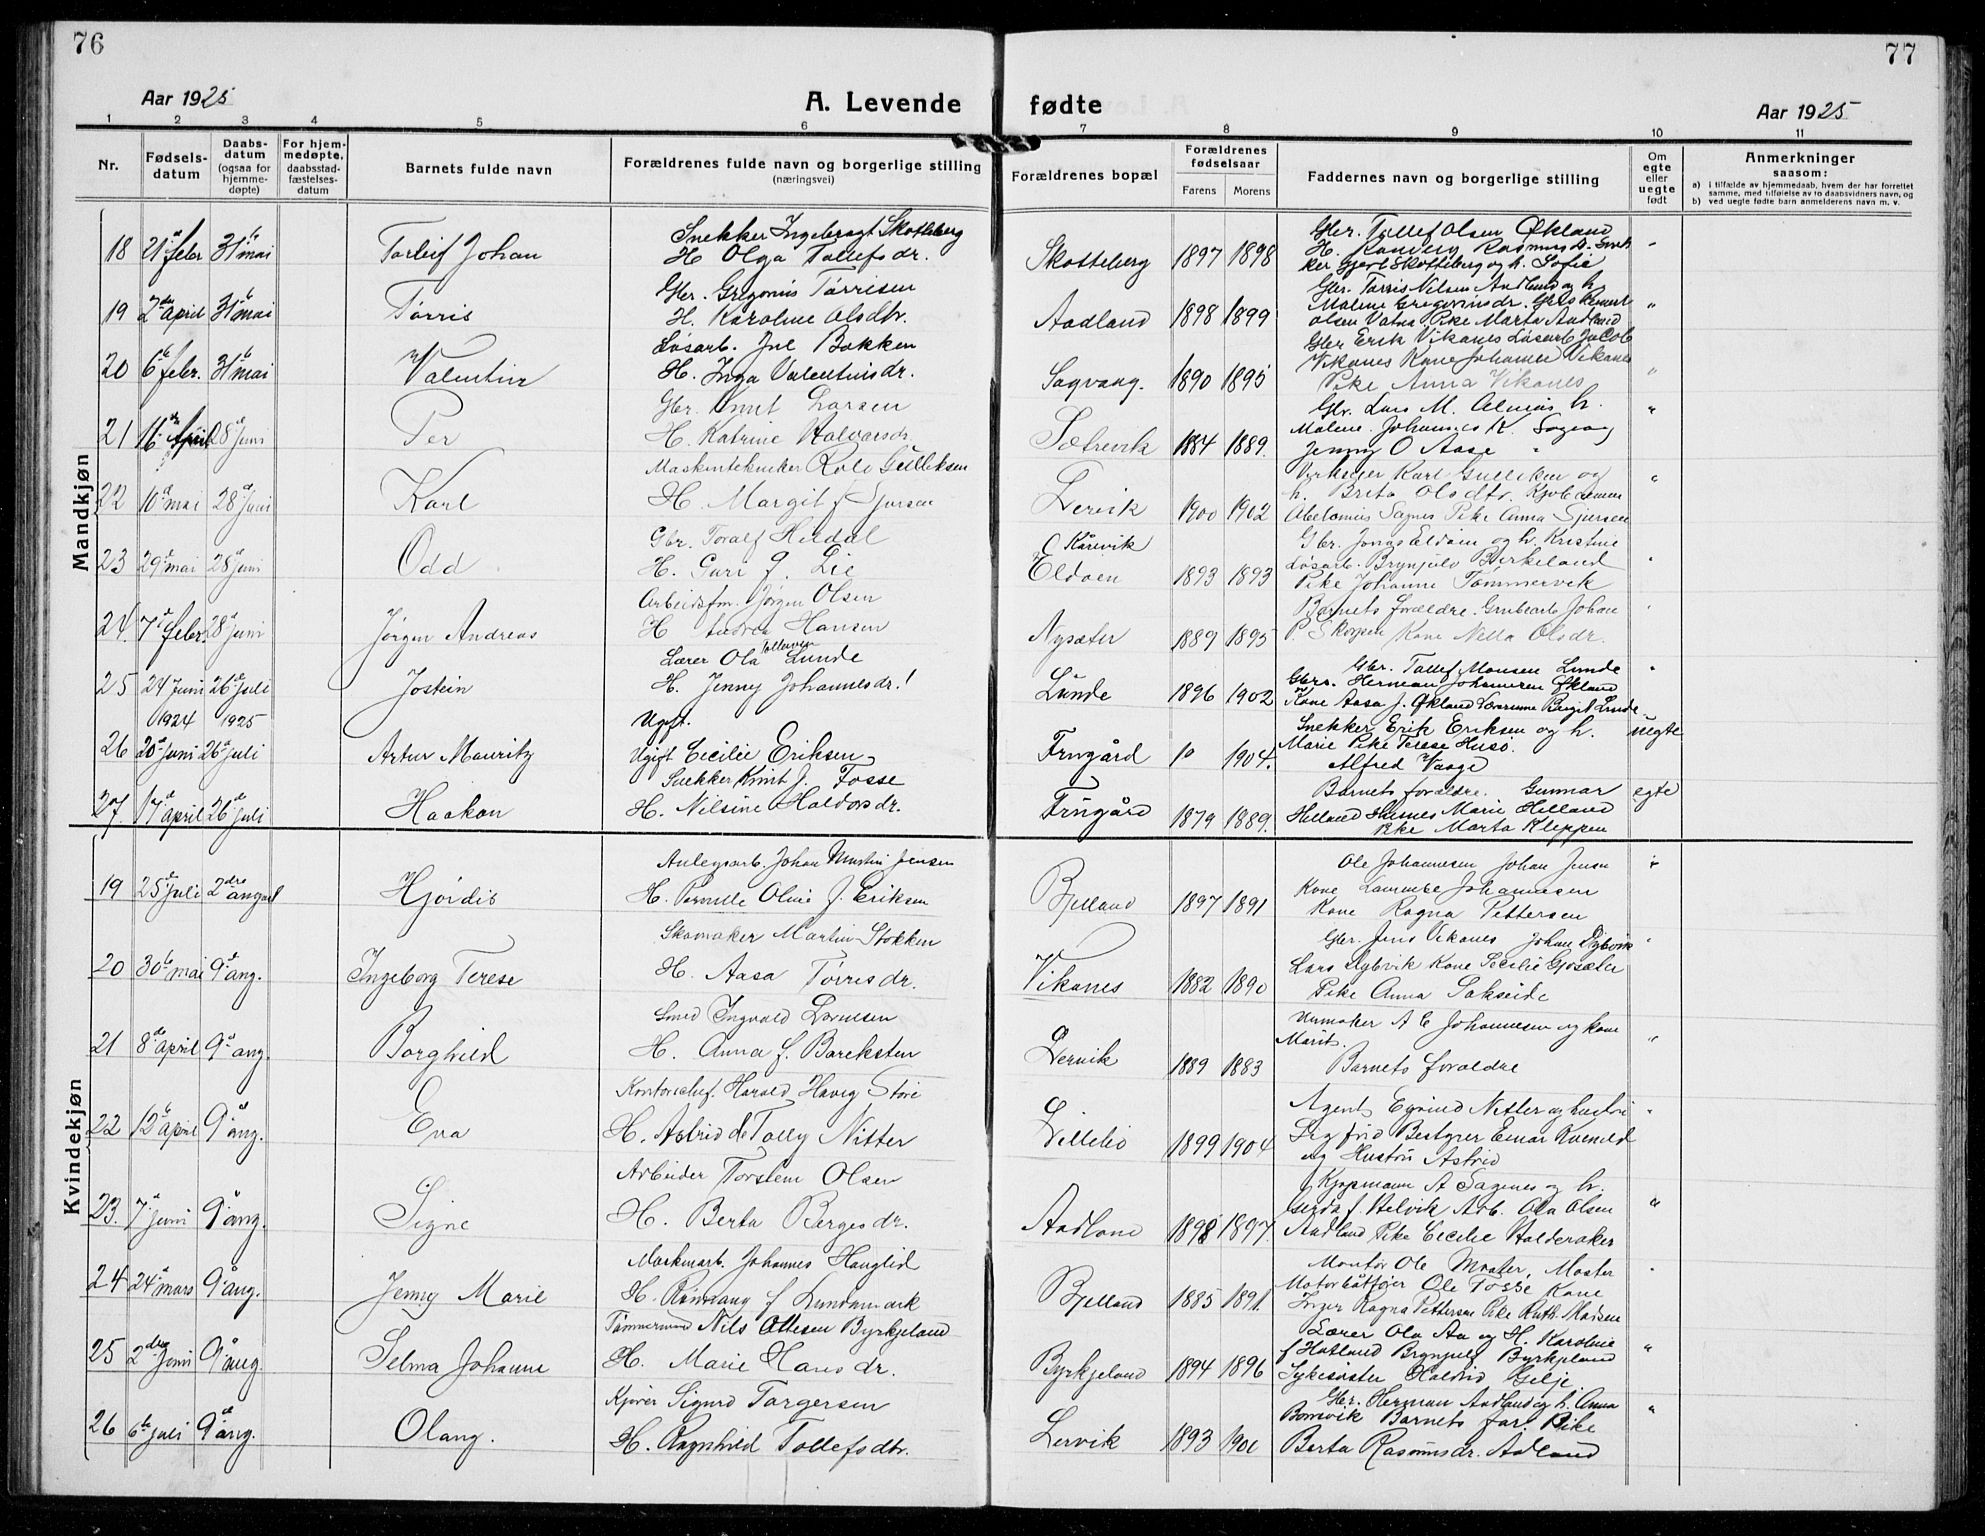 76
77
Aar 1925
A. Levende
fødte
Aar 1925
1 2 3 4 5 6 7 8 9 10 11
Nr.
Fødsels-
datum
Daabs-
datum
(ogsaa for
hjemme-
døpte)
For hjem-
medøpte,
daabsstad-
fæstelses-
datum
Barnets fulde navn
Forældrenes fulde navn og borgerlige stilling
(næringsvei)
Forældrenes bopæl
Forældrenes
fødselsaar
Farens
Morens
Faddernes navn og borgerlige stilling
Om
egte
eller
uegte
født
Anmerkninger
saasom:
a) i tilfælde av hjemmedaab, hvem der har forrettet
samme, med tilføielse av to daabsvidners navn, og
b) ved uegte fødte barn anmelderens navn m. v.
Mandkjøn
Snekker Ingebragt Skotteberg
Gbr. Tollef Olsen Økland
18 21 febr 31 mai Torleif Johan H Olga Tollefsdr. Skotteberg 1897 1898 H. Rasmusd. Snek
ker Gjert Skotteberg og h. Sofie
Gbr. Gregorius Tørrisen
Gbr. Tørris Nilsen Aadland og h
19 2den april 31 mai Tørris H. Karoline Olsdtr. Aadland 1898 1899 Malene Gregoriusdr. Gbr. Klement
Olsen Vatna Pike Marta Aadland
Løsarb. Bakken
Gbr Erik Vikanes Løsarb Jacob
20 6 febr. 31 mai Valentin H. Inga Valentinsdr. Sagvang. 1890 1895 Vikanes Kone Johanne Vikanes
Pike Anna Vikanes
Gbr. Knut Larsen
Gbr. Lars M. Alnæs h.
21 16 April 28 juni Per H. Katrine Halvorsdr. Sætrevik 1884 1889. Malene. Johannes K. Sagvag
Jenny O Aase
Maskintekniker Rolv Gulliksen
Karl Gulliksen og
22 10 mai 28 juni Karl H. Margit f Sjursen Lervik 1900 1902 h. Brita Olsdtr. Kjøbmann
Sagnes Pike Anna Sjursen
Gbr. Toralf Heldal
Gbr. Jonas Eldøen og h. Kristine
23 29 mai 28 juni Odd H. Guri J. Lie Kårevik Eldøen 1893 1893 Løsarb. Brynjulv Birkeland
Pike Johanne Tømmervik
Arbeidsfm. Jørgen Olsen
Barnets forældre. Grubearb Johan
24. 7 febr. 28 juni Jørgen Andreas H Andrea Hansen Nysæter 1889 1895 P. Skorpen Kone Nella Olsdr.
Lærer Ola Tollevsen Lunde
Gbr. Tollef Monsen Lunde
25 24 juni 1924 26 juli 1925 Jostein H. Jenny Johannesdr! Lunde 1896 1902 Gbr. Herman Johannesen Økland
Kone Aasa J. Økland Lærerinne Bergit Lunde
Ugift.
Snekker Erik Eriksen og h. uegte
26 20 juni 26 juli Artur Mauritz Ugift Cecilie Eriksen Frugård 1904. Marie Pike Terese Huso.
Alfred Vaage
Snekker Knut J. Fosse
Barnets forældre. Gunnar egte
27. 17 april 26 juli Haakon H. Nilsine Haldorsdr. Frugård 1879 1889. Helland Husnes Marie Helland
Pike Marta Kleppen
Kvindekjøn
Anlegsarb. Johan Martin Jensen
Ole Johannesen Johan Jensen
19 25 juli 2dre august Hjørdis H. Pernille Oline J. Eriksen Bjelland 1897 1891 Kone Laurentse Johannesen
Kone Ragna Pettersen
Skomaker Martin Stokken
Gbr. Jens Vikanes Johan Dybvik
20 30 mai 9 aug. Ingeborg Terese H. Aasa Tørrisdr. Vikanes 1882 1890 Lars Dybvik Kone Secilie Gjøsæter
Pike Anna Sakseide
Smed Ingvald Larensen
Urmaker A E Johannesen og kone
21 8 april 9 aug. Borghild H. Anna f. Bareksten Lervik 1889 1883 Marit.
Barnets forældre
Kontorchef. Harald Havig Støre
Agent Eyvind Nitter og hustru
22 12 april 9 aug. Eva H. Astrid de Tolly Nitter Lillebø 1899 1904 Sigfrid Bestyrer Einar Kvenild
og Hustru Astrid
Arbeider Torstein Olsen
Kjøpmann A Sagenes og h.
23. 7 juni 9 aug. Signe H. Berta Bergesdr. Aadland 1898 1897. Gerda f. Helvik Arb. Ola Olsen
Aadland Pike Cecilie Halderaker
Maskinarb. Johannes Hauglid
Montør Ole Moster
24 24 mars 9 aug. Jenny Marie H. Rønnaug f Lundamark Bjelland 1885 1891. Motorbåtfører Ole Fosse Kone
Inger Ragna Pettersen Pike Ruth Madsen
Tømmermand Nils Ottesen Byrkjeland
Lærer Ola Aa og H. Karoline
25 2dre juni 9 aug. Selma Johanne H. Marie Hansdr. Byrkjeland 1894 1896 f Hatland Brynjulf Byrkjeland
Sykesøster Haldrid Gilje
Kjører Sigurd Torgersen
Gbr. Herman Aadland og h. Anna
26 6te juli 9 aug. Olaug. H. Ragnhild Tollefsdtr. Lervik 1893 1901 Bomvik Barnets far. Pike
Berta Rasmusdr. Aadland